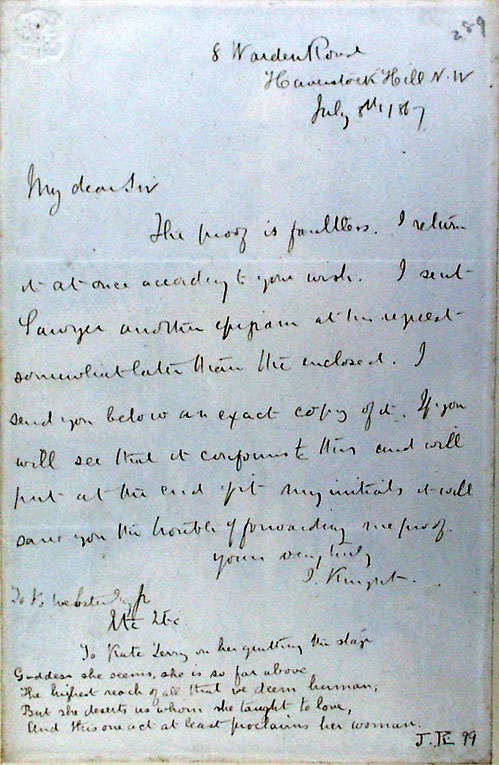 289
8 Warden Road
Haverstock Hill N.W
July 8th 1867
My dear Sir
The proof is faultless. I return
it at once according to your wish. I sent
Sawyer another epigram at his request
somewhat later than the enclosed. I
send you below an exact copy of it. If you
will see that it conforms to this and will
put at the end of it my initials it will
save you the trouble of forwarding me proof.
Yours very truly
J. Knight.
To B. Webster Jr
Etc Etc.
To Kate Terry on her quitting the stage
Goddess she seems, she is so far above
The highest reach of all that we deem human;
But she deserts us whom she taught to love,
And this one act at least proclaims her woman.
J. K. 99